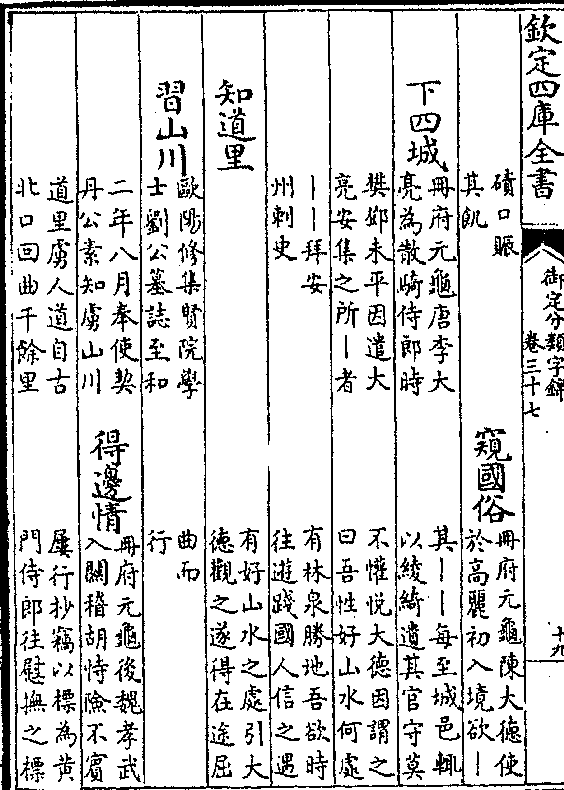 欽定四庫全書
御定分類字錦
卷三十七
十九
磧口賑
其飢
窺國俗
冊府元龜陳大德使
於高麗初入境欲｜
其｜｜每至城邑輒
以綾綺遺其官守莫
不懽悦大德因謂之
曰吾性好山水何處
有林泉勝地吾欲時
往遊踐國人信之遇
有好山水之處引大
德觀之遂得在途屈
曲而
行
下四城
冊府元龜唐李大
亮為散騎侍郎時
樊鄧未平因遣大
亮安集之所｜者
｜｜拜安
州刺史
知道里
習山川
歐陽修集賢院學
士劉公墓誌至和
二年八月奉使契
丹公素知虜山川
道里虜人道自古
北口回曲千餘里
得邊情
冊府元龜後魏孝武
入關稽胡恃險不賓
屢行抄竊以標為黃
門侍郎往慰撫之標